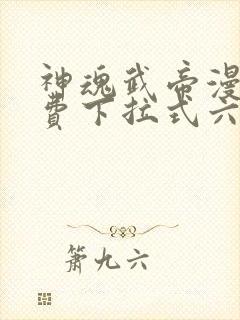 神魂武帝漫
费下拉式六
箫九六